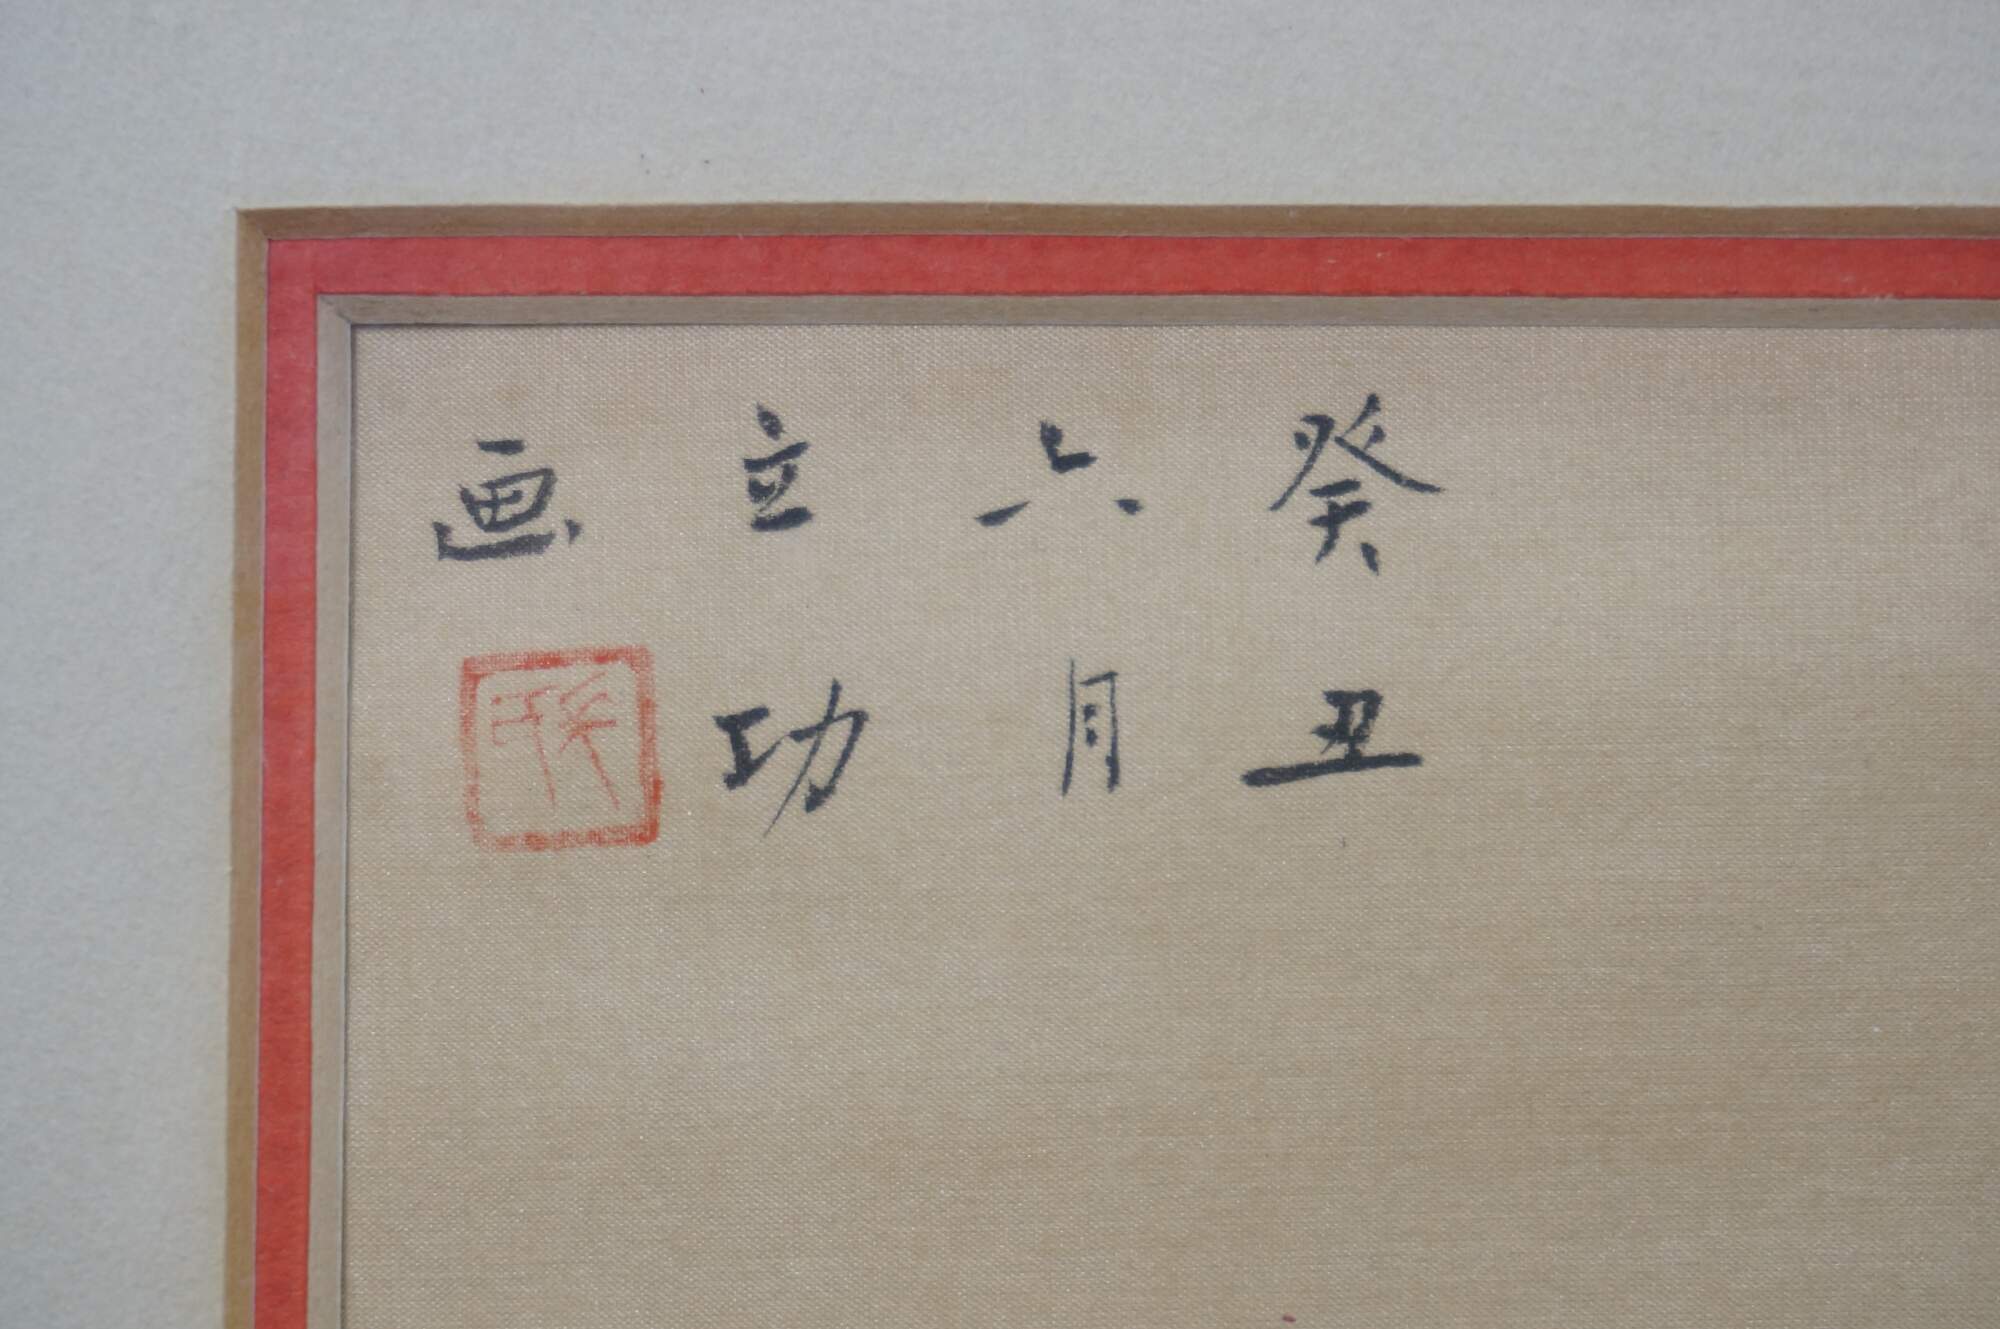 癸丑
六月
立功
画